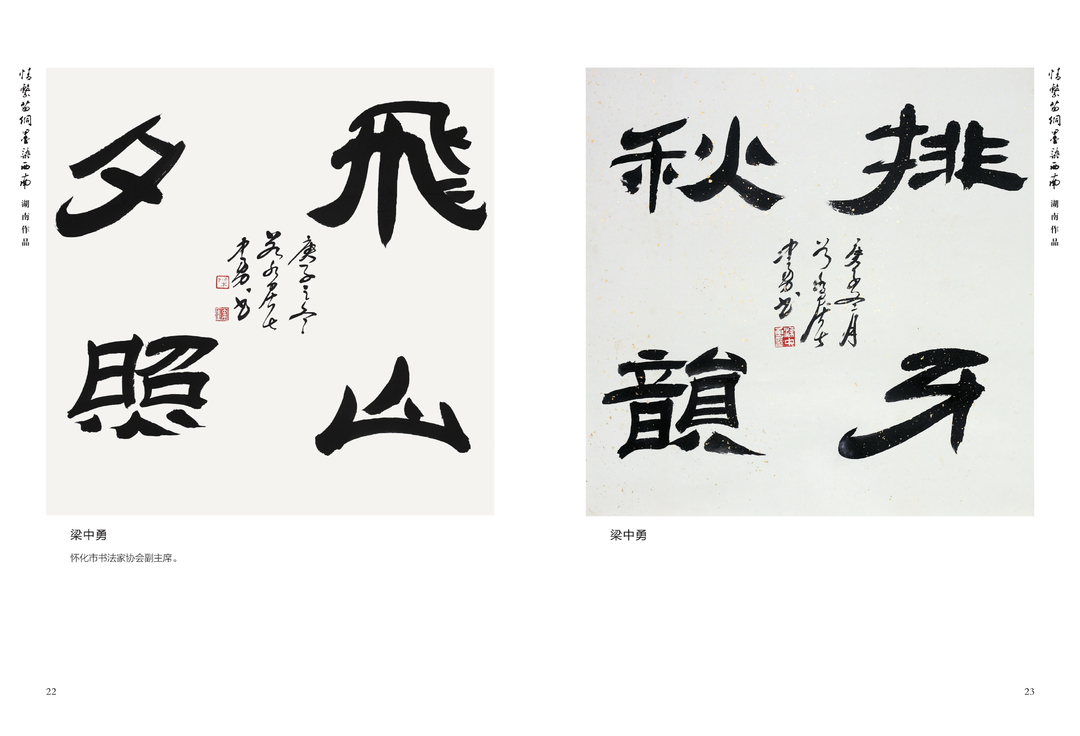 情繫苗侗墨染西南
湖南作品
飛山
夕照
庚子之冬
若水居士
中勇书
梁中勇
怀化市书法家协会副主席。
22
情繫苗侗墨染西南
湖南作品
排牙
秋韻
庚子冬月
若水居士
中勇书
梁中勇
23